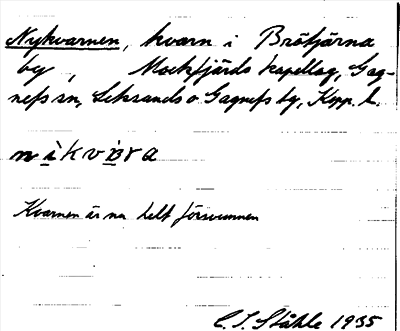 Nykvarnen, kvarn i Bröfjärna
by, Mockfjärds kapellag, Gag-
nefs sn, Leksands o. Gagnefs tg, Kopp. l.
Kvarnen är nu helt försvunnen
C. I. Ståhle 1935